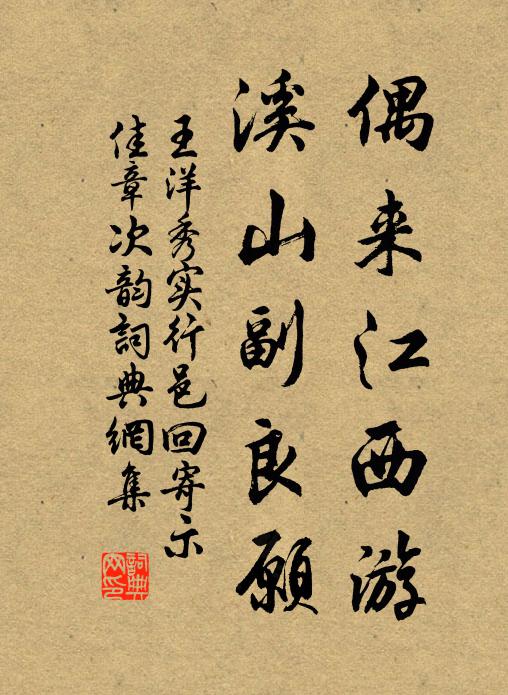 偶来江西游
溪山副良願
王洋秀实行邑回寄示
佳章次韵詞典網集
詞典网印